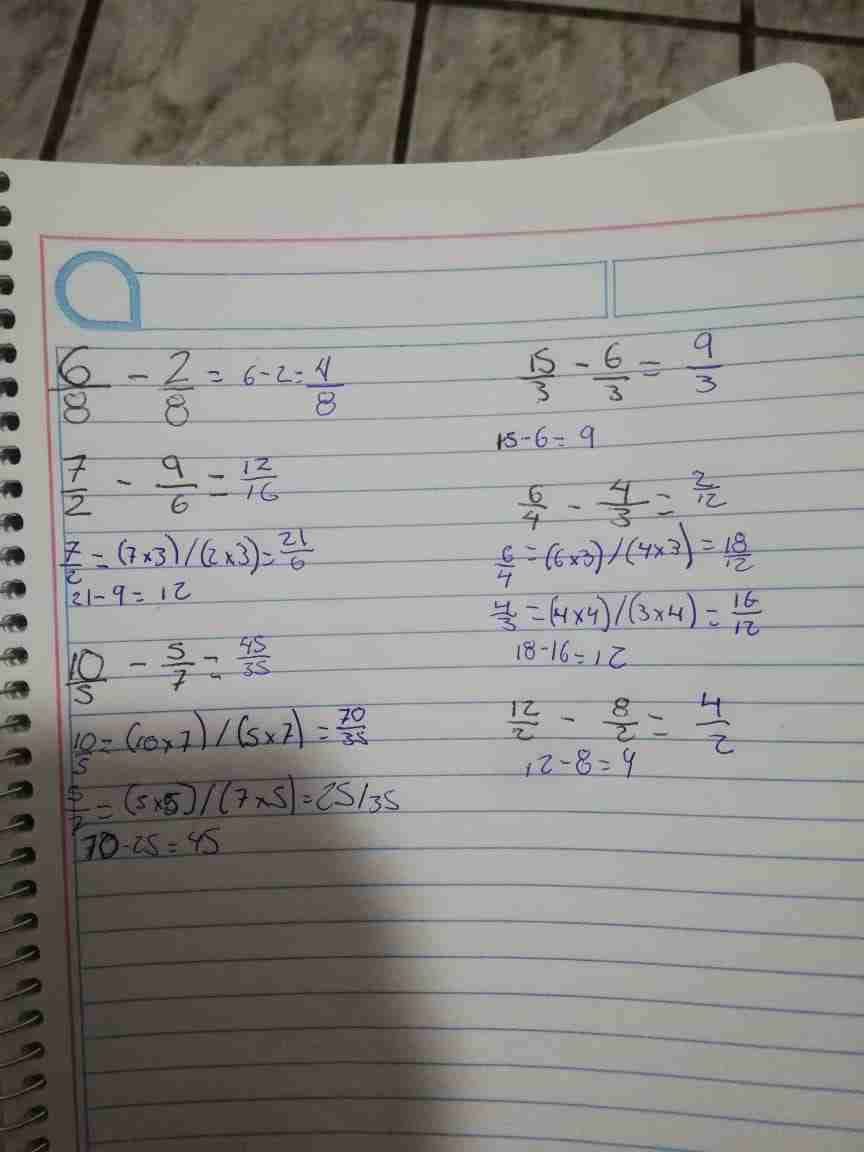 6/8 - 2/8 = 6-2 = 4/8
7/2 - 9/6 = 12/16
7/2 = (7x3)/(2x3) = 21/6
21-9 = 12
10/5 - 5/7 = 45/35
10/5 = (10x7)/(5x7) = 70/35
5/7 = (5x5)/(7x5) = 25/35
70-25 = 45
15/3 - 6/3 = 9/3
15-6 = 9
6/4 - 4/3 = 2/12
6/4 = (6x3)/(4x3) = 18/12
4/3 = (4x4)/(3x4) = 16/12
18-16 = 12
12/2 - 8/2 = 4/2
12-8 = 4